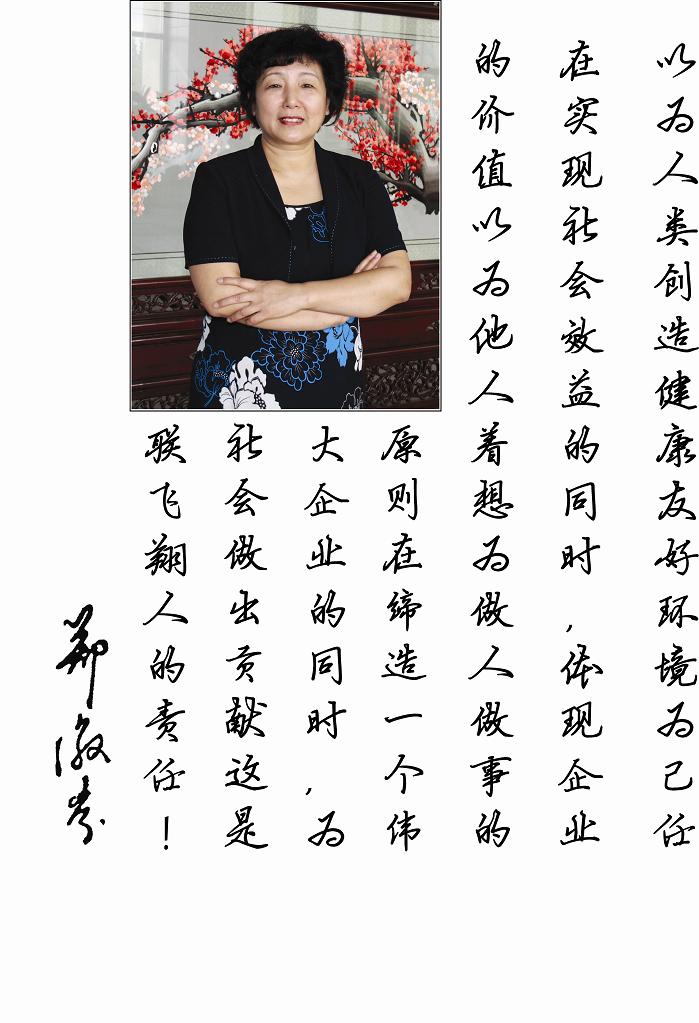 以为人类创造健康友好环境为己任
在实现社会效益的同时,体现企业
的价值以为他人着想为做人做事的
原则在缔造一个伟
大企业的同时,为
社会做出贡献这是
联飞翔人的责任!
郑淑芬